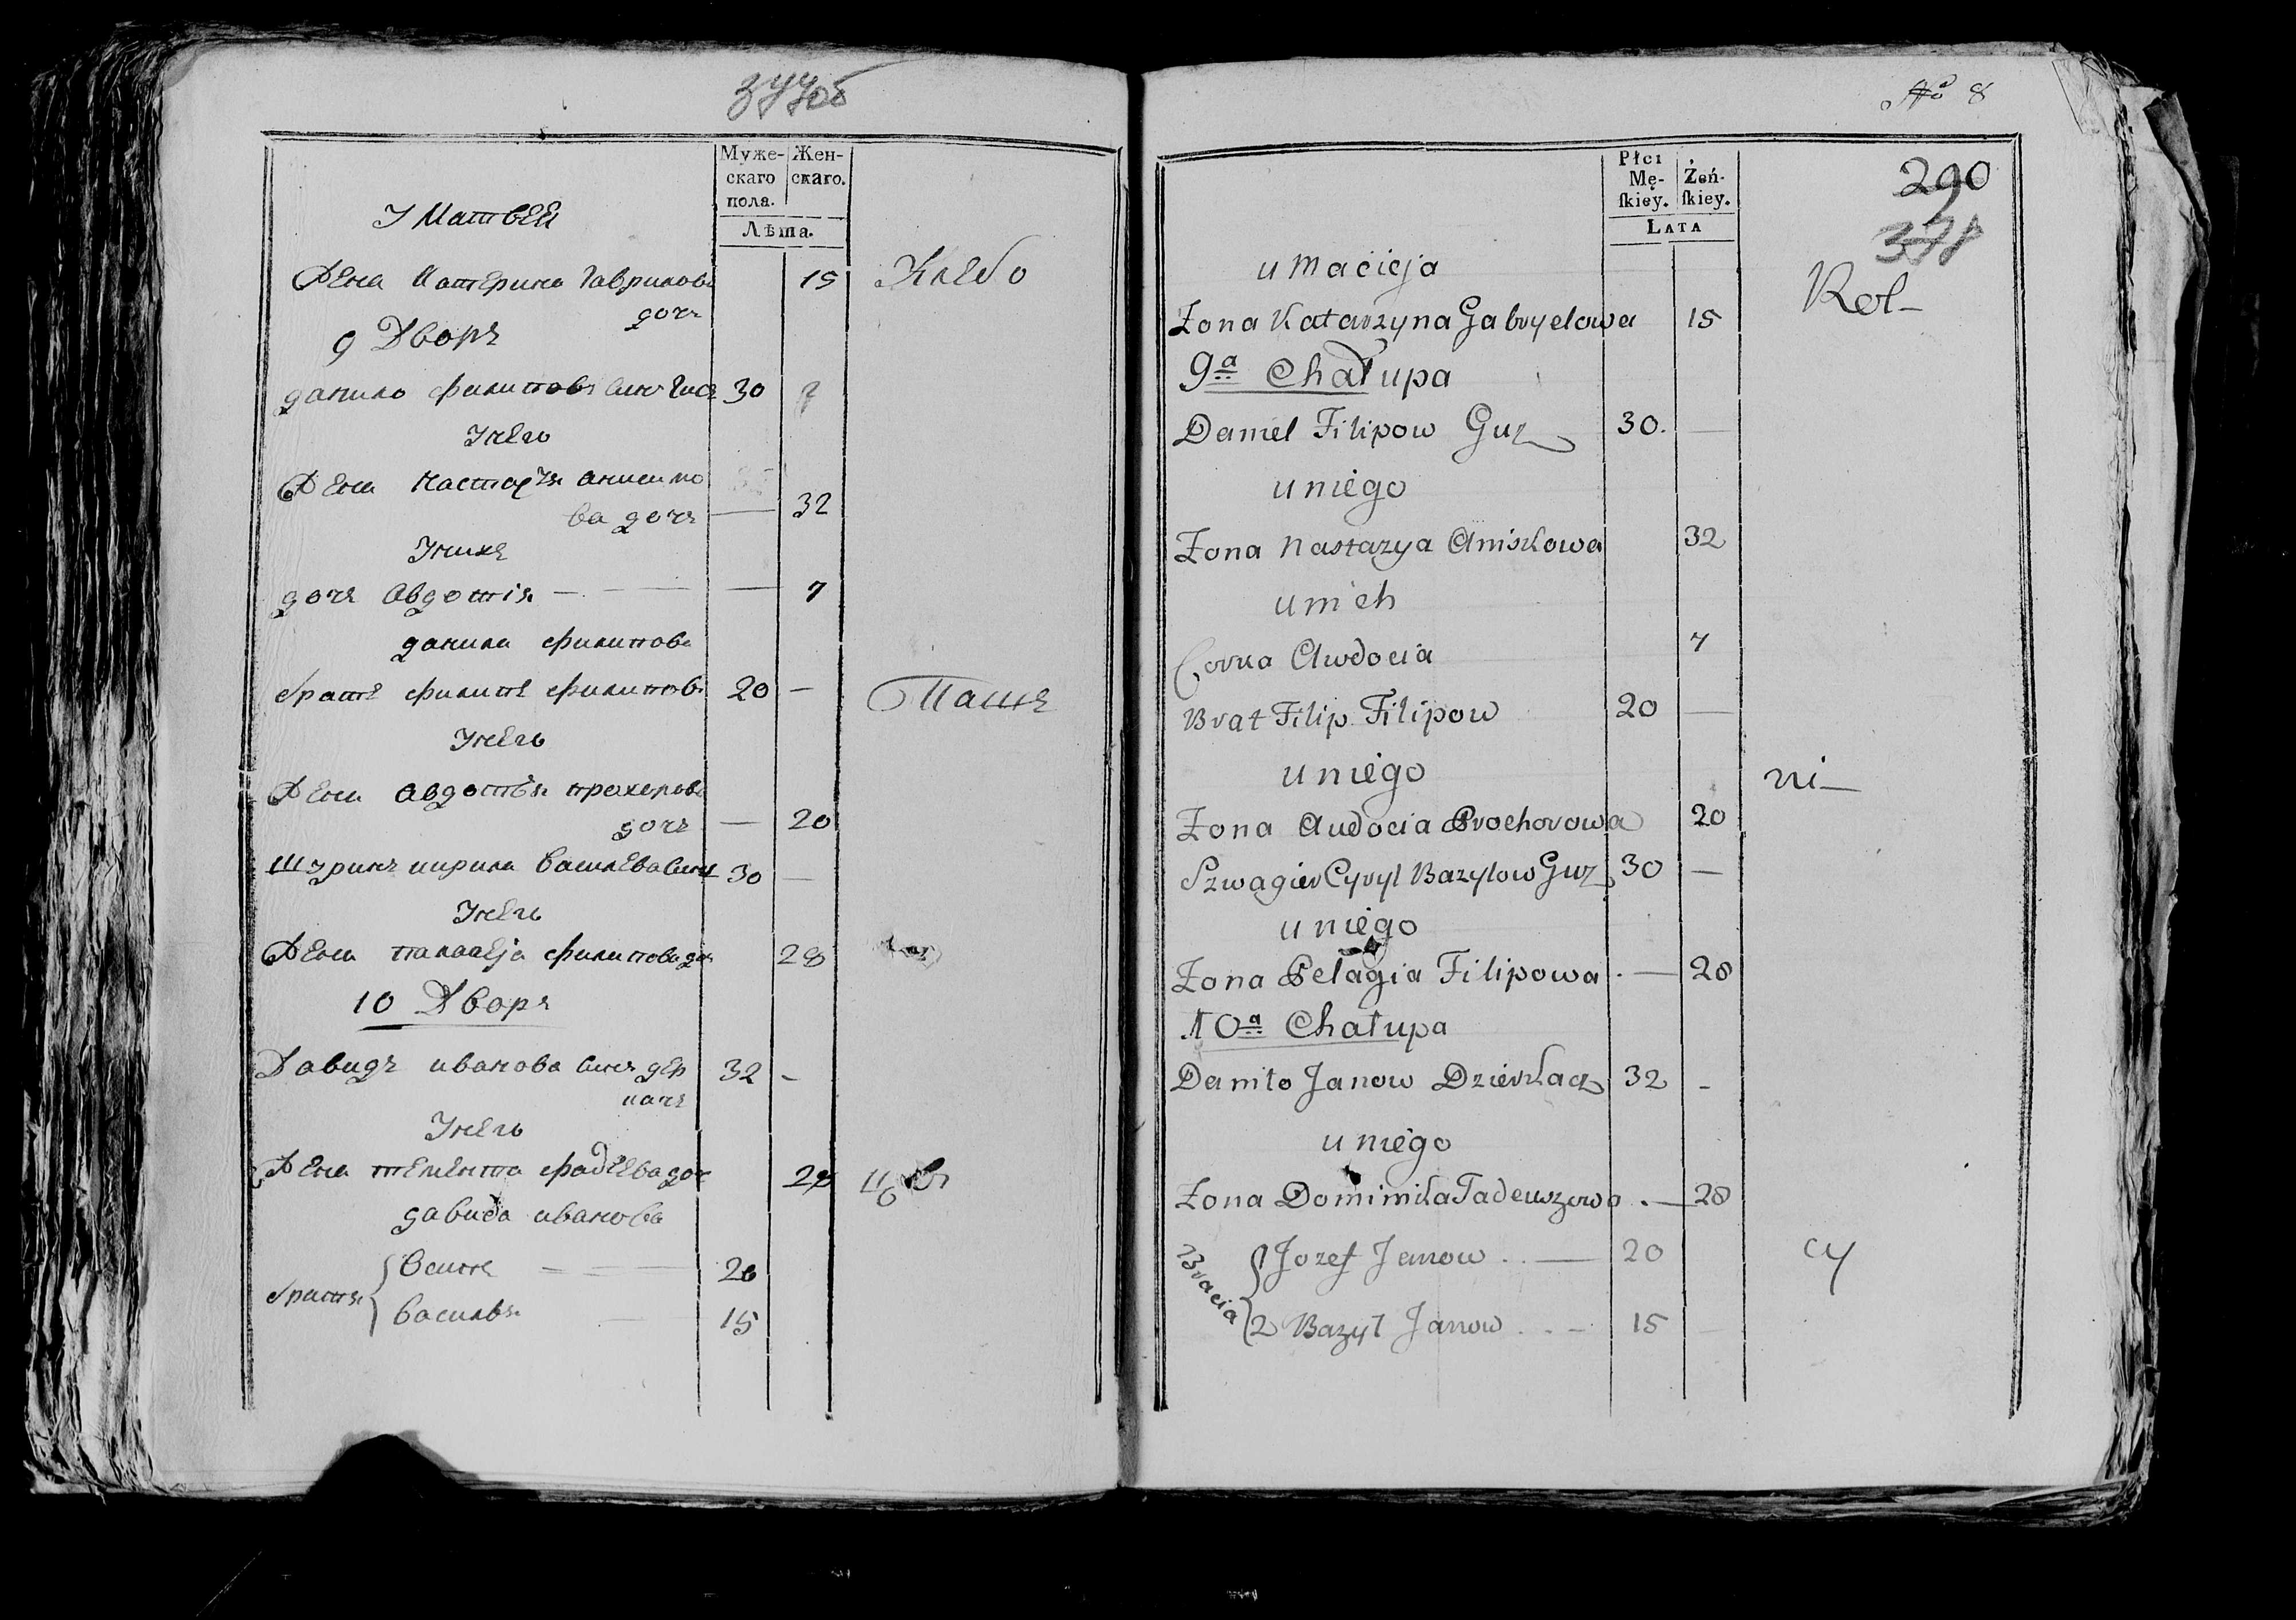 377об
Муже-
скаго
пола.
Жен-
скаго.
Лѣта.
У Матвея
Жена Катерина Гаврилова 15 Хлебо
дочь
9 Дворъ
данило филиповъ синъ Гисъ 30
Унего
Жена настася анисимо
ва дочь — 32
Унихъ
дочь Авдотія — — — 7
данила филипова
братъ филипъ филиповъ 20 — Пашъ
Унего
Жена авдотья прохорова
дочь — 20
шуринъ кирила василева синъ 30 —
Унего
Жена палагеја филипова доч 28
10 Дворъ
Давидъ иванова синъ дер 32 -
качъ
Унего
Жена фадеева доч 28 цовъ
давида иванова
братя
Осипъ — 20
василья — 15
No 8
Płci
Mę-
ſkiey.
Żeń-
ſkiey.
LATA
290
378
u Macieja
Żona Katarzyna Gabryelowa 15 Rol-
9a Chałupa
Daniel Filipow Guz 30. —
u niego
Żona Nastazya Aniskowa 32
u nich
Corka Awdocia 7
Brat Filip Filipow 20 —
u niego ni-
Żona Audocia Prochorowa 20
Szwagier Cyryl Bazylow Guz 30 —
u niego
Żona Pelagia Filipowa . — 28
10a Chałupa
Daniło Janow Dzierkacz 32 -
u niego
Żona Dominika Tadeuszowa . — 28
Bracia
Jozef Janow . . — 20 cy
2 Bazyl Janow . . - 15 —